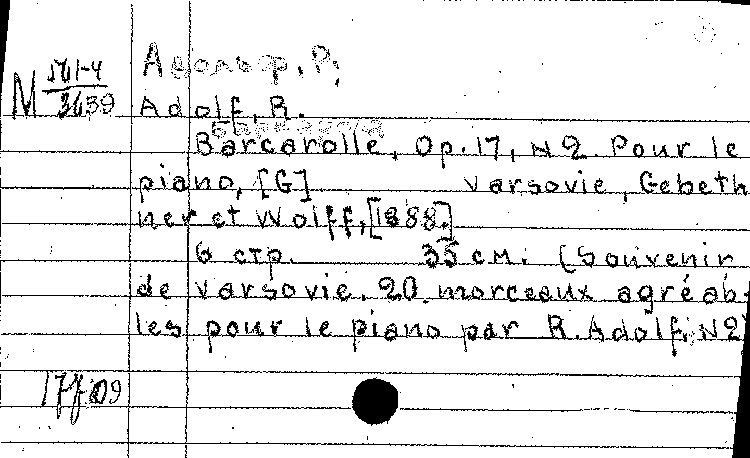 М 561-4
3639
Адольф, Р.
Adolf, R.
Баркарола
Barcarolle, Op. 17, N 2. Pour le
piano, [G] Varsovie, Gebeth
ner et Wolff, [1888.]
6 стр. 35 см. (Souvenir
de Varsovie. 20 morceaux agréab-
les pour le piano par R. Adolf. N2